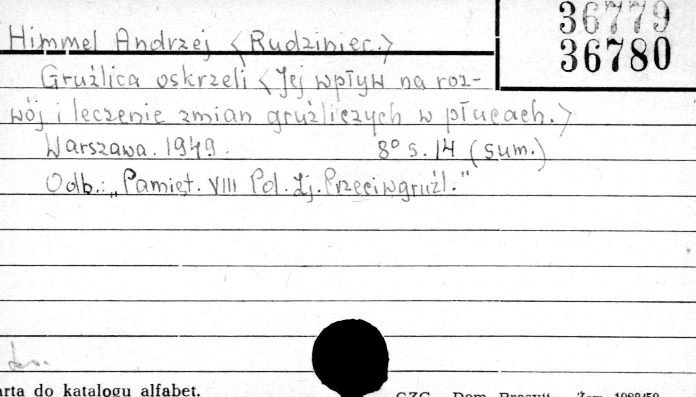 36779
36780
Himmel Andrzej <Rudziniec.>
Gruźlica oskrzeli <Jej wpływ na roz-
wój i leczenie zmian gruźliczych w płucach.>
Warszawa. 1949. 8° s. 14 (sum.)
Odb.: „Pamięt. VIII Pol. Zj. Przeciwgruźl."
arta do katalogu alfabet.